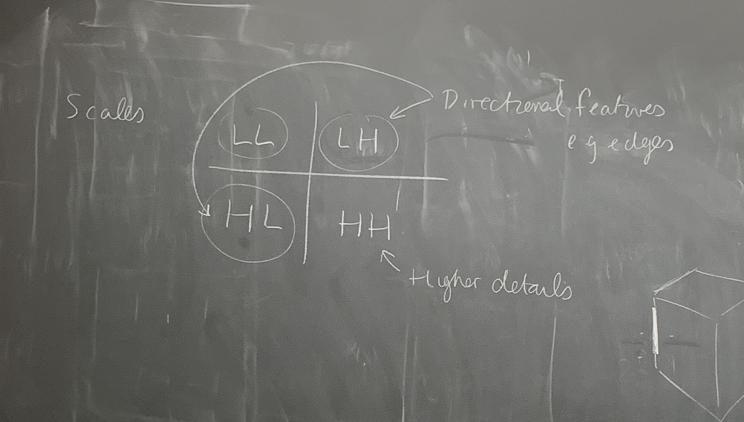 Scales
LL LH
Directional features
eg edges
HL HH
Higher details